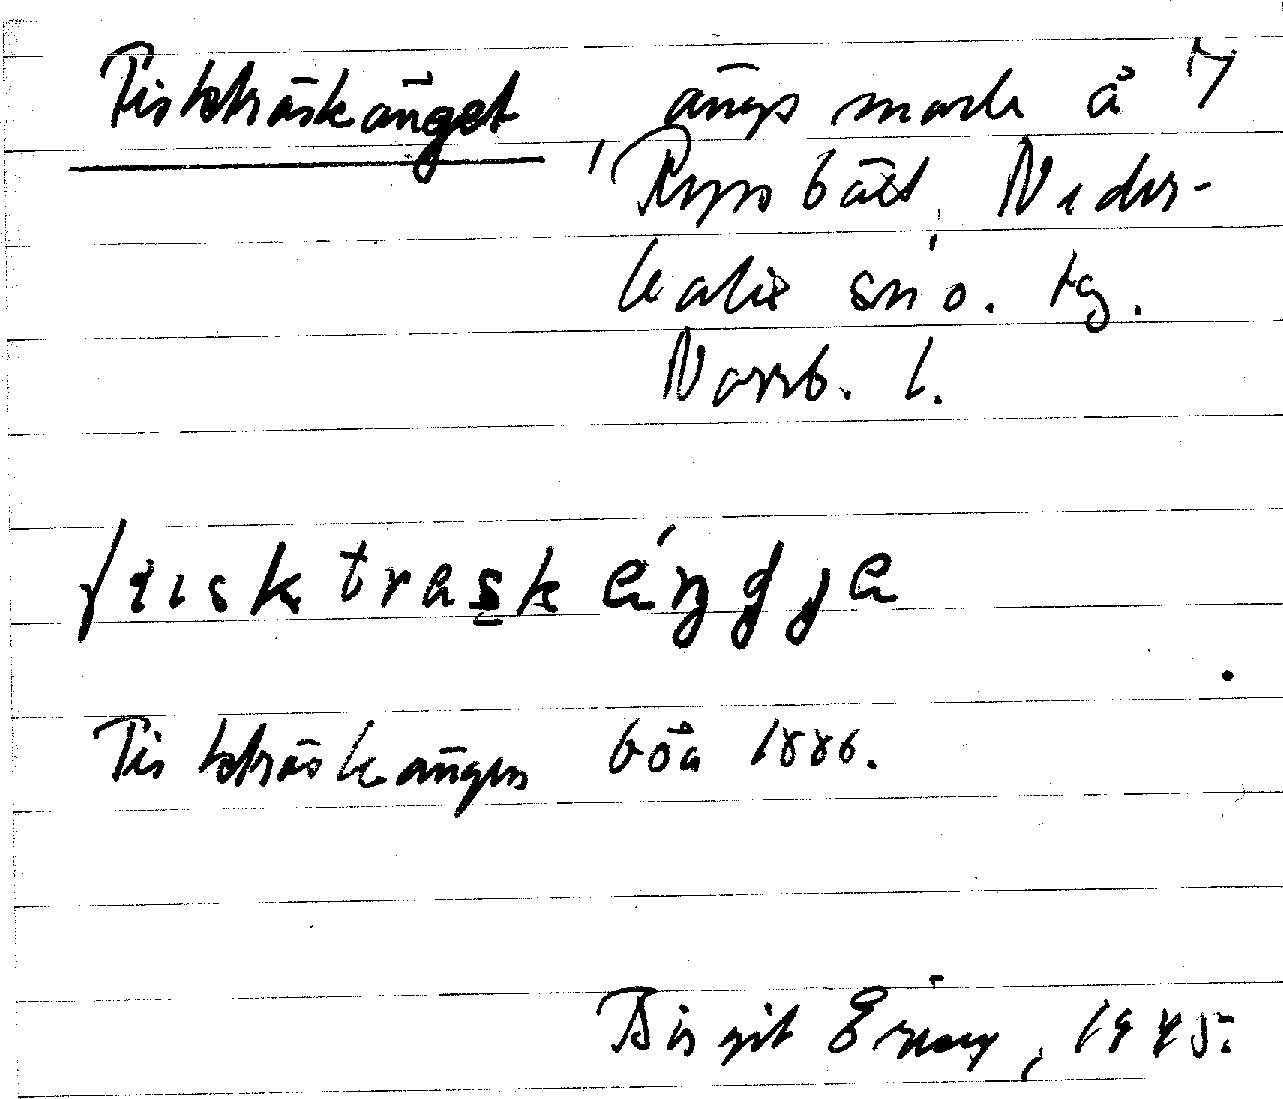 Fiskträskänget, ängsmark å 7
Ryssbält, Neder-
kalix sn o. tg.
Norrb. l.
fɪskträskéŋgja
Fiskträskängen böa 1886.
Birgit Ering, 1945.